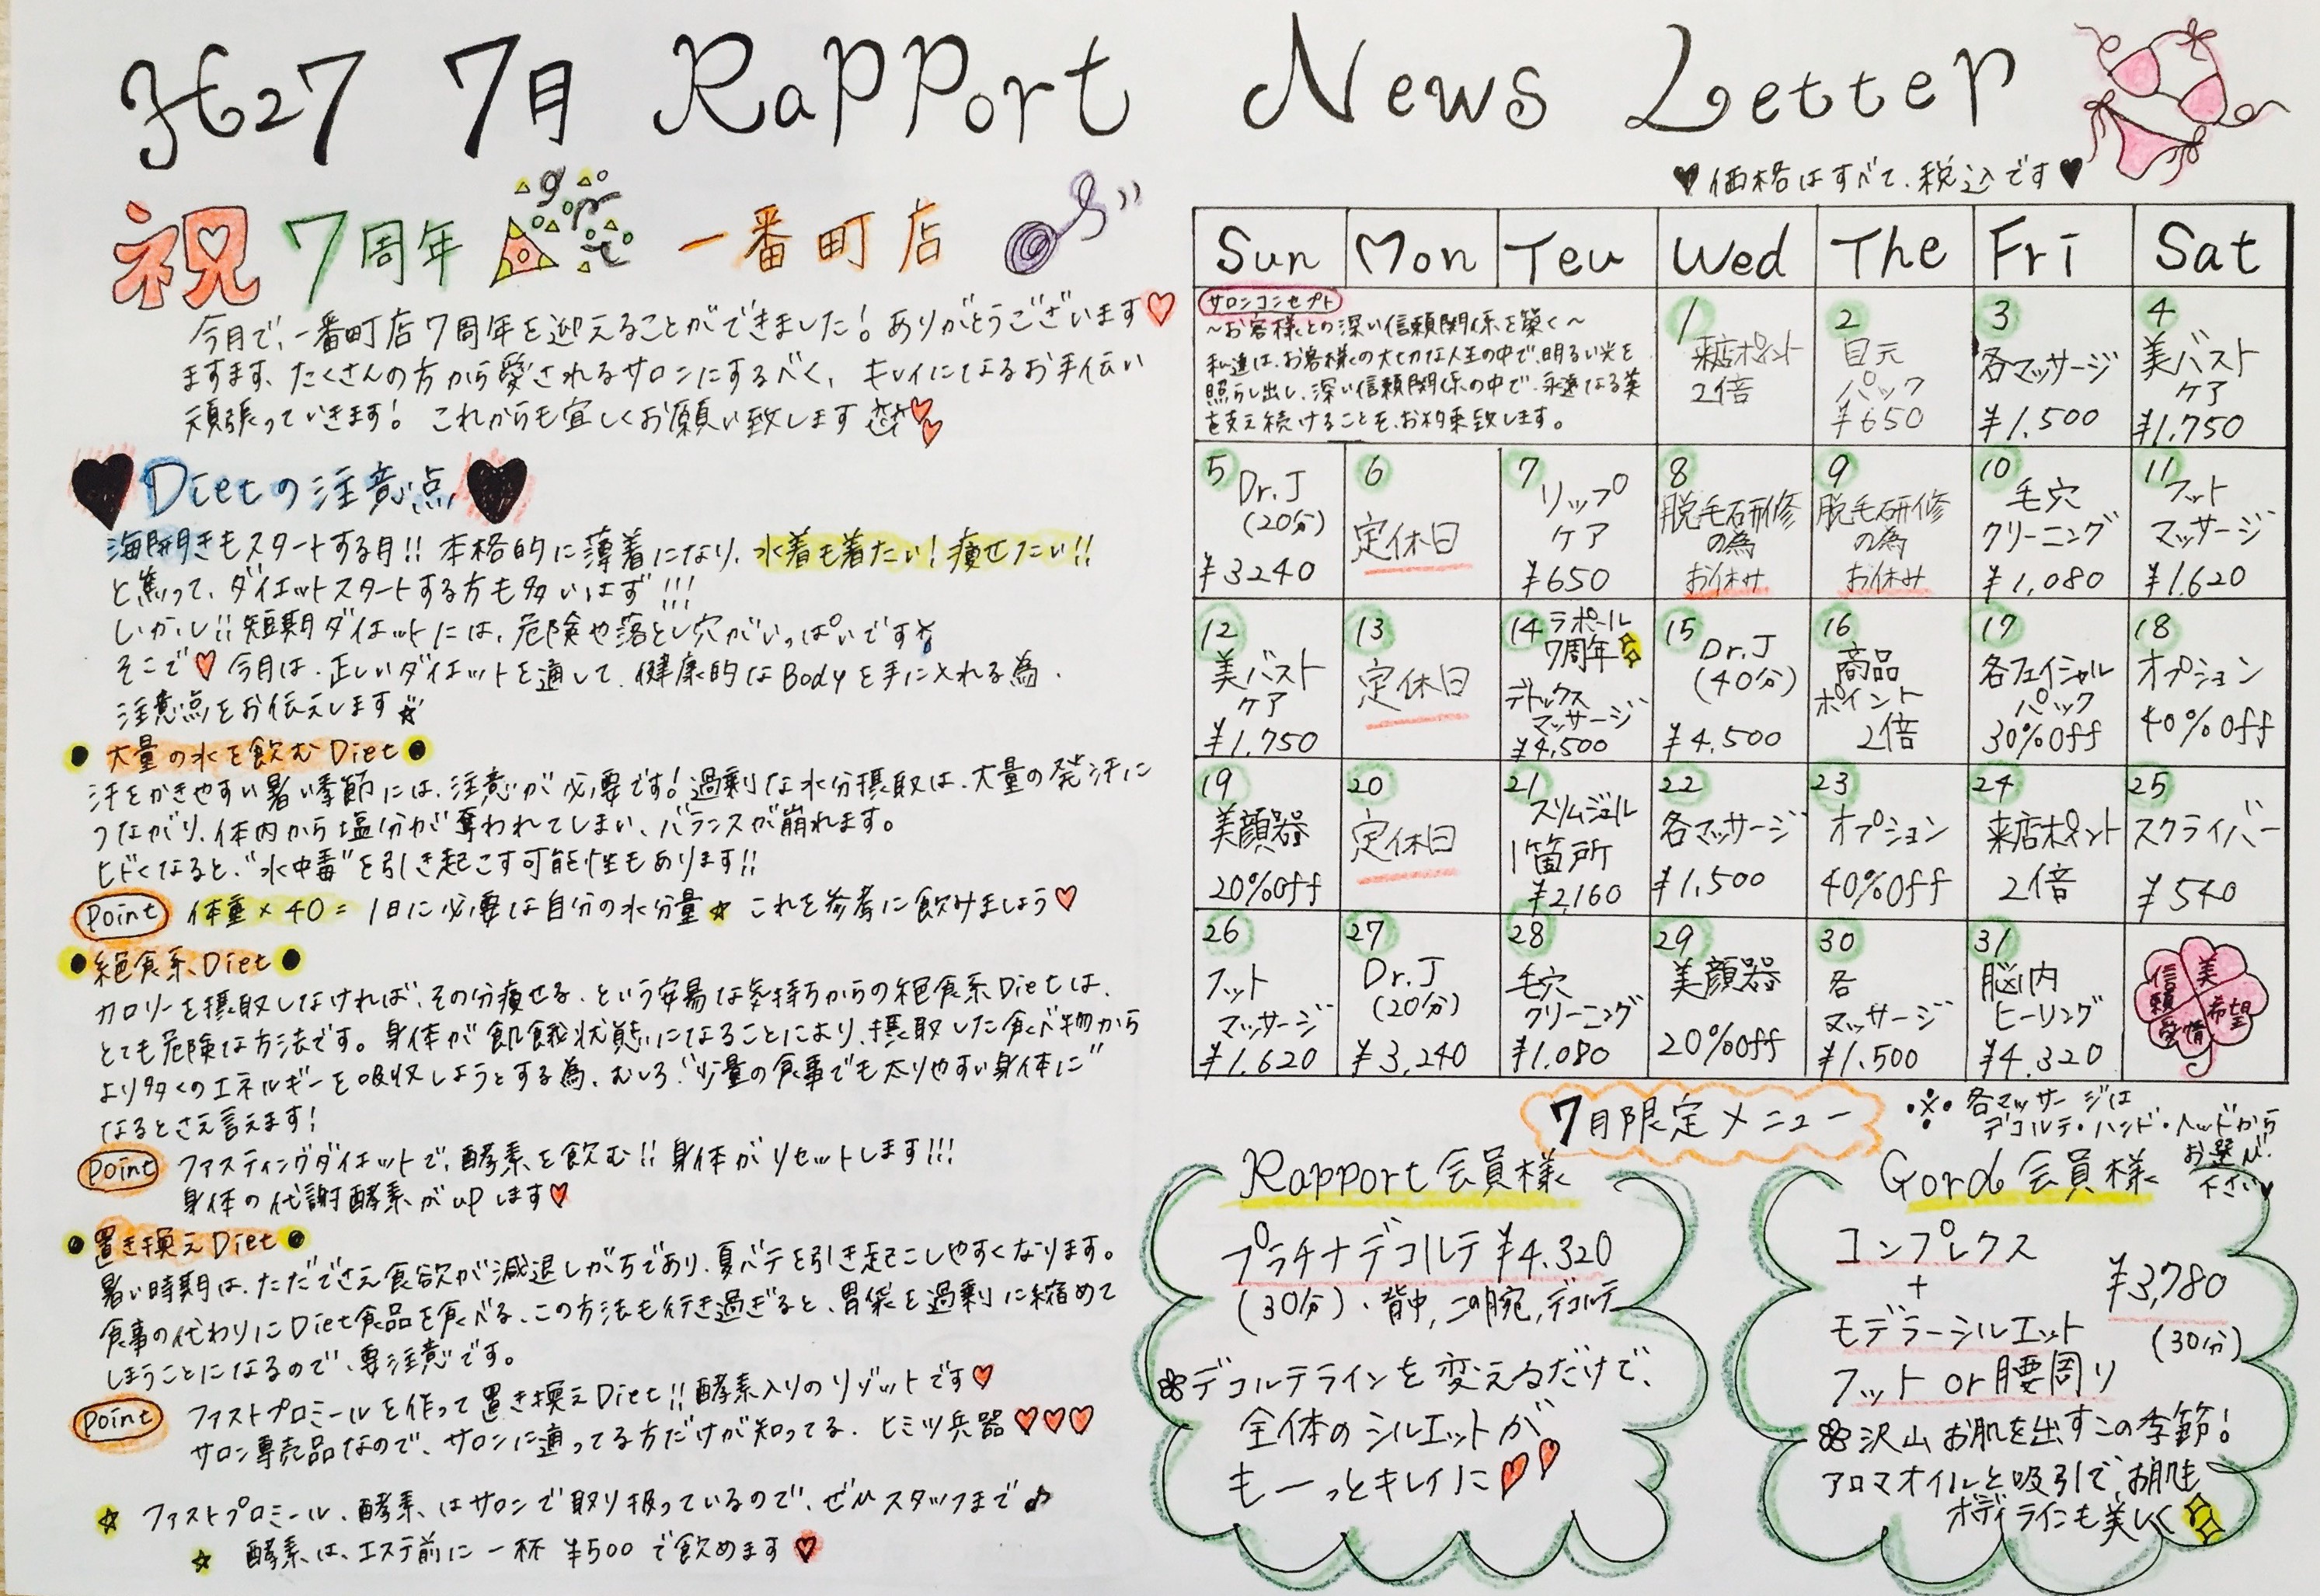 H27 7月 RaPPort News Letter
♥価格はすべて、税込です♥
祝 7周年 一番町店
今月で、一番町店7周年を迎えることができました！ありがとうございます♡
ますます、たくさんの方から愛されるサロンにするべく、キレイになるお手伝い
頑張っていきます！これからも宜しくお願い致します
♥Dietの注意点♥
海開きもスタートする月!! 本格的に薄着になり、水着も着たい！痩せたい!!
と焦って、ダイエットスタートする方も多いはず!!!
しかし!!短期ダイエットには、危険や落とし穴がいっぱいです
そこで♡今月は、正しいダイエットを通して、健康的なBodyを手に入れる為、
注意点をお伝えします☆
●大量の水を飲むDiet●
汗をかきやすい暑い季節には、注意が必要です！過剰な水分摂取は、大量の発汗に
つながり、体内から塩分が奪われてしまい、バランスが崩れます。
ヒドくなると、“水中毒”を引き起こす可能性もあります!!
Point 体重×40=1日に必要な自分の水分量☆ これを参考に飲みましょう♡
●絶食系Diet●
カロリーを摂取しなければ、その分痩せる、という安易な気持ちからの絶食系Dietは、
とても危険な方法です。身体が飢餓状態になることにより、摂取した食べ物から
より多くのエネルギーを吸収しようとする為、むしろ“少量の食事でも太りやすい身体に”
なるとさえ言えます！
Point ファスティングダイエットで、酵素を飲む!! 身体がリセットします!!!
身体の代謝酵素がupします♡
●置き換えDiet●
暑い時期は、ただでさえ食欲が減退しがちであり、夏バテを引き起こしやすくなります。
食事の代わりにDiet食品を食べる、この方法も行き過ぎると、胃袋を過剰に縮めて
しまうことになるので、要注意です。
Point ファストプロミールを作って置き換えDiet!! 酵素入りのリゾットです♡
サロン専売品なので、サロンに通ってる方だけが知ってる、ヒミツ兵器♡♡♡
☆ ファストプロミール、酵素、はサロンで取り扱っているので、ぜひスタッフまで♪
☆ 酵素は、エステ前に一杯¥500で飲めます♡
Sun Mon Teu Wed The Fri Sat
サロンコンセプト
～お客様との深い信頼関係を築く～
私達は、お客様の大切な人生の中で、明るい光を
照らし出し、深い信頼関係の中で、永遠なる美
を支え続けることを、お約束致します。
1 来店ポイント 2倍
2 目元 パック ¥650
3 各マッサージ ¥1.500
4 美バスト ケア ¥1.750
5 Dr.J (20分) ¥3240
6 定休日
7 リップ ケア ¥650
8 脱毛研修 の為 お休み
9 脱毛研修 の為 お休み
10 毛穴 クリーニング ¥1,080
11 フット マッサージ ¥1.620
12 美バスト ケア ¥1.750
13 定休日
14 ラポール 7周年 デトックス マッサージ ¥4,500
15 Dr.J (40分) ¥4.500
16 商品 ポイント 2倍
17 各フェイシャル パック 30%Off
18 オプション 40%Off
19 美顔器 20%Off
20 定休日
21 スリムジェル 1箇所 ¥2,160
22 各マッサージ ¥1,500
23 オプション 40%Off
24 来店ポイント 2倍
25 スクライバー ¥540
26 フット マッサージ ¥1.620
27 Dr.J (20分) ¥3,240
28 毛穴 クリーニング ¥1.080
29 美顔器 20%Off
30 各 マッサージ ¥1.500
31 脳内 ヒーリング ¥4.320
信頼 美 希望 愛情
7月限定メニュー
※ 各マッサージは
デコルテ・ハンド・ヘッドから
お選び
下さい♥
Rapport会員様
プラチナデコルテ ¥4.320
(30分)・背中,二の腕,デコルテ
デコルテラインを変えるだけで、
全体のシルエットが
もーっとキレイに
Gord会員様
コンプレクス
+
モデラーシルエット
¥3,780
(30分)
フット or 腰周り
沢山お肌を出すこの季節！
アロマオイルと吸引で、お肌も
ボディラインも美しく